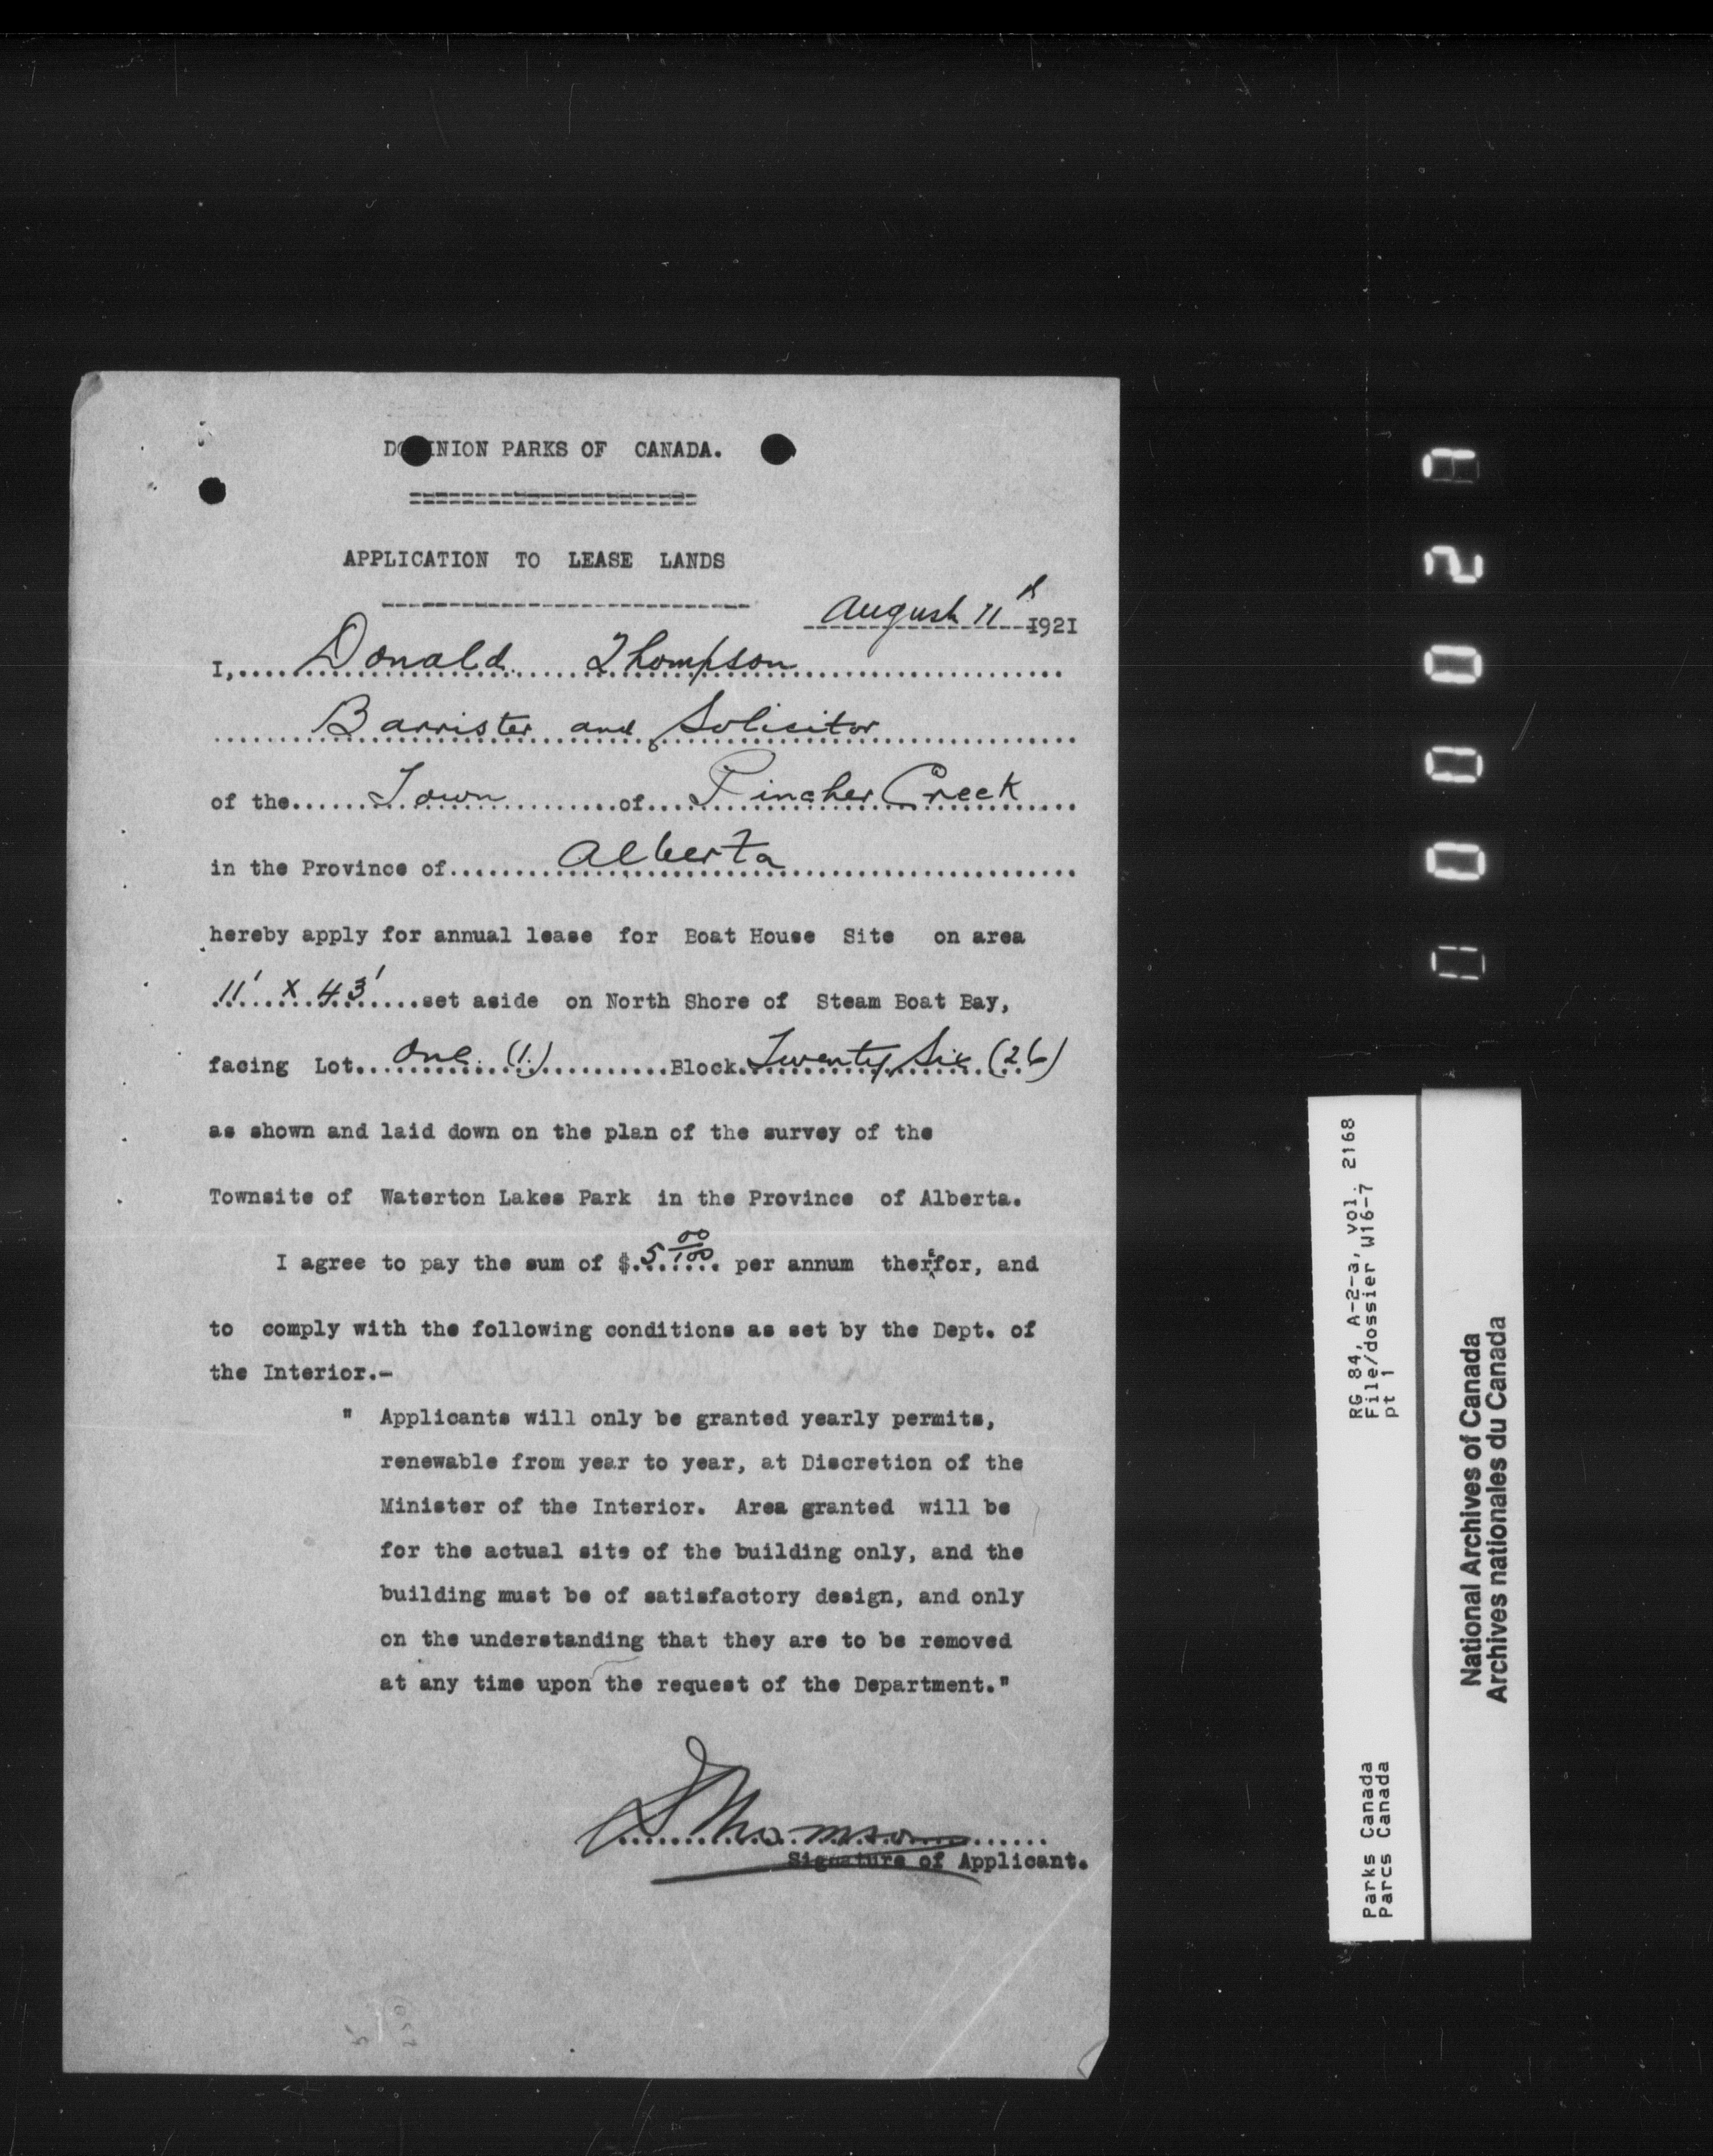 DOMINION PARKS OF CANADA.
======================
APPLICATION TO LEASE LANDS
----------------------------
August 11th 1921
I,.... Donald Thompson....................
Barrister and Solicitor
of the...... Town ......of.... Pincher Creek
in the Province of...... Alberta
hereby apply for annual lease for Boat House Site on area
11' x 43' ....set aside on North Shore of Steam Boat Bay,
facing Lot... One (1.) ..........Block. Twenty Six (26)
as shown and laid down on the plan of the survey of the
Townsite of Waterton Lakes Park in the Province of Alberta.
I agree to pay the sum of $. 5 00/100 per annum therefor, and
to comply with the following conditions as set by the Dept. of
the Interior.-
" Applicants will only be granted yearly permits,
renewable from year to year, at Discretion of the
Minister of the Interior. Area granted will be
for the actual site of the building only, and the
building must be of satisfactory design, and only
on the understanding that they are to be removed
at any time upon the request of the Department."
D Thomson
Signature of Applicant.
RG 84, A-2-a, vol. 2168
File/dossier W16-7
pt 1
Parks Canada
Parcs Canada
National Archives of Canada
Archives nationales du Canada